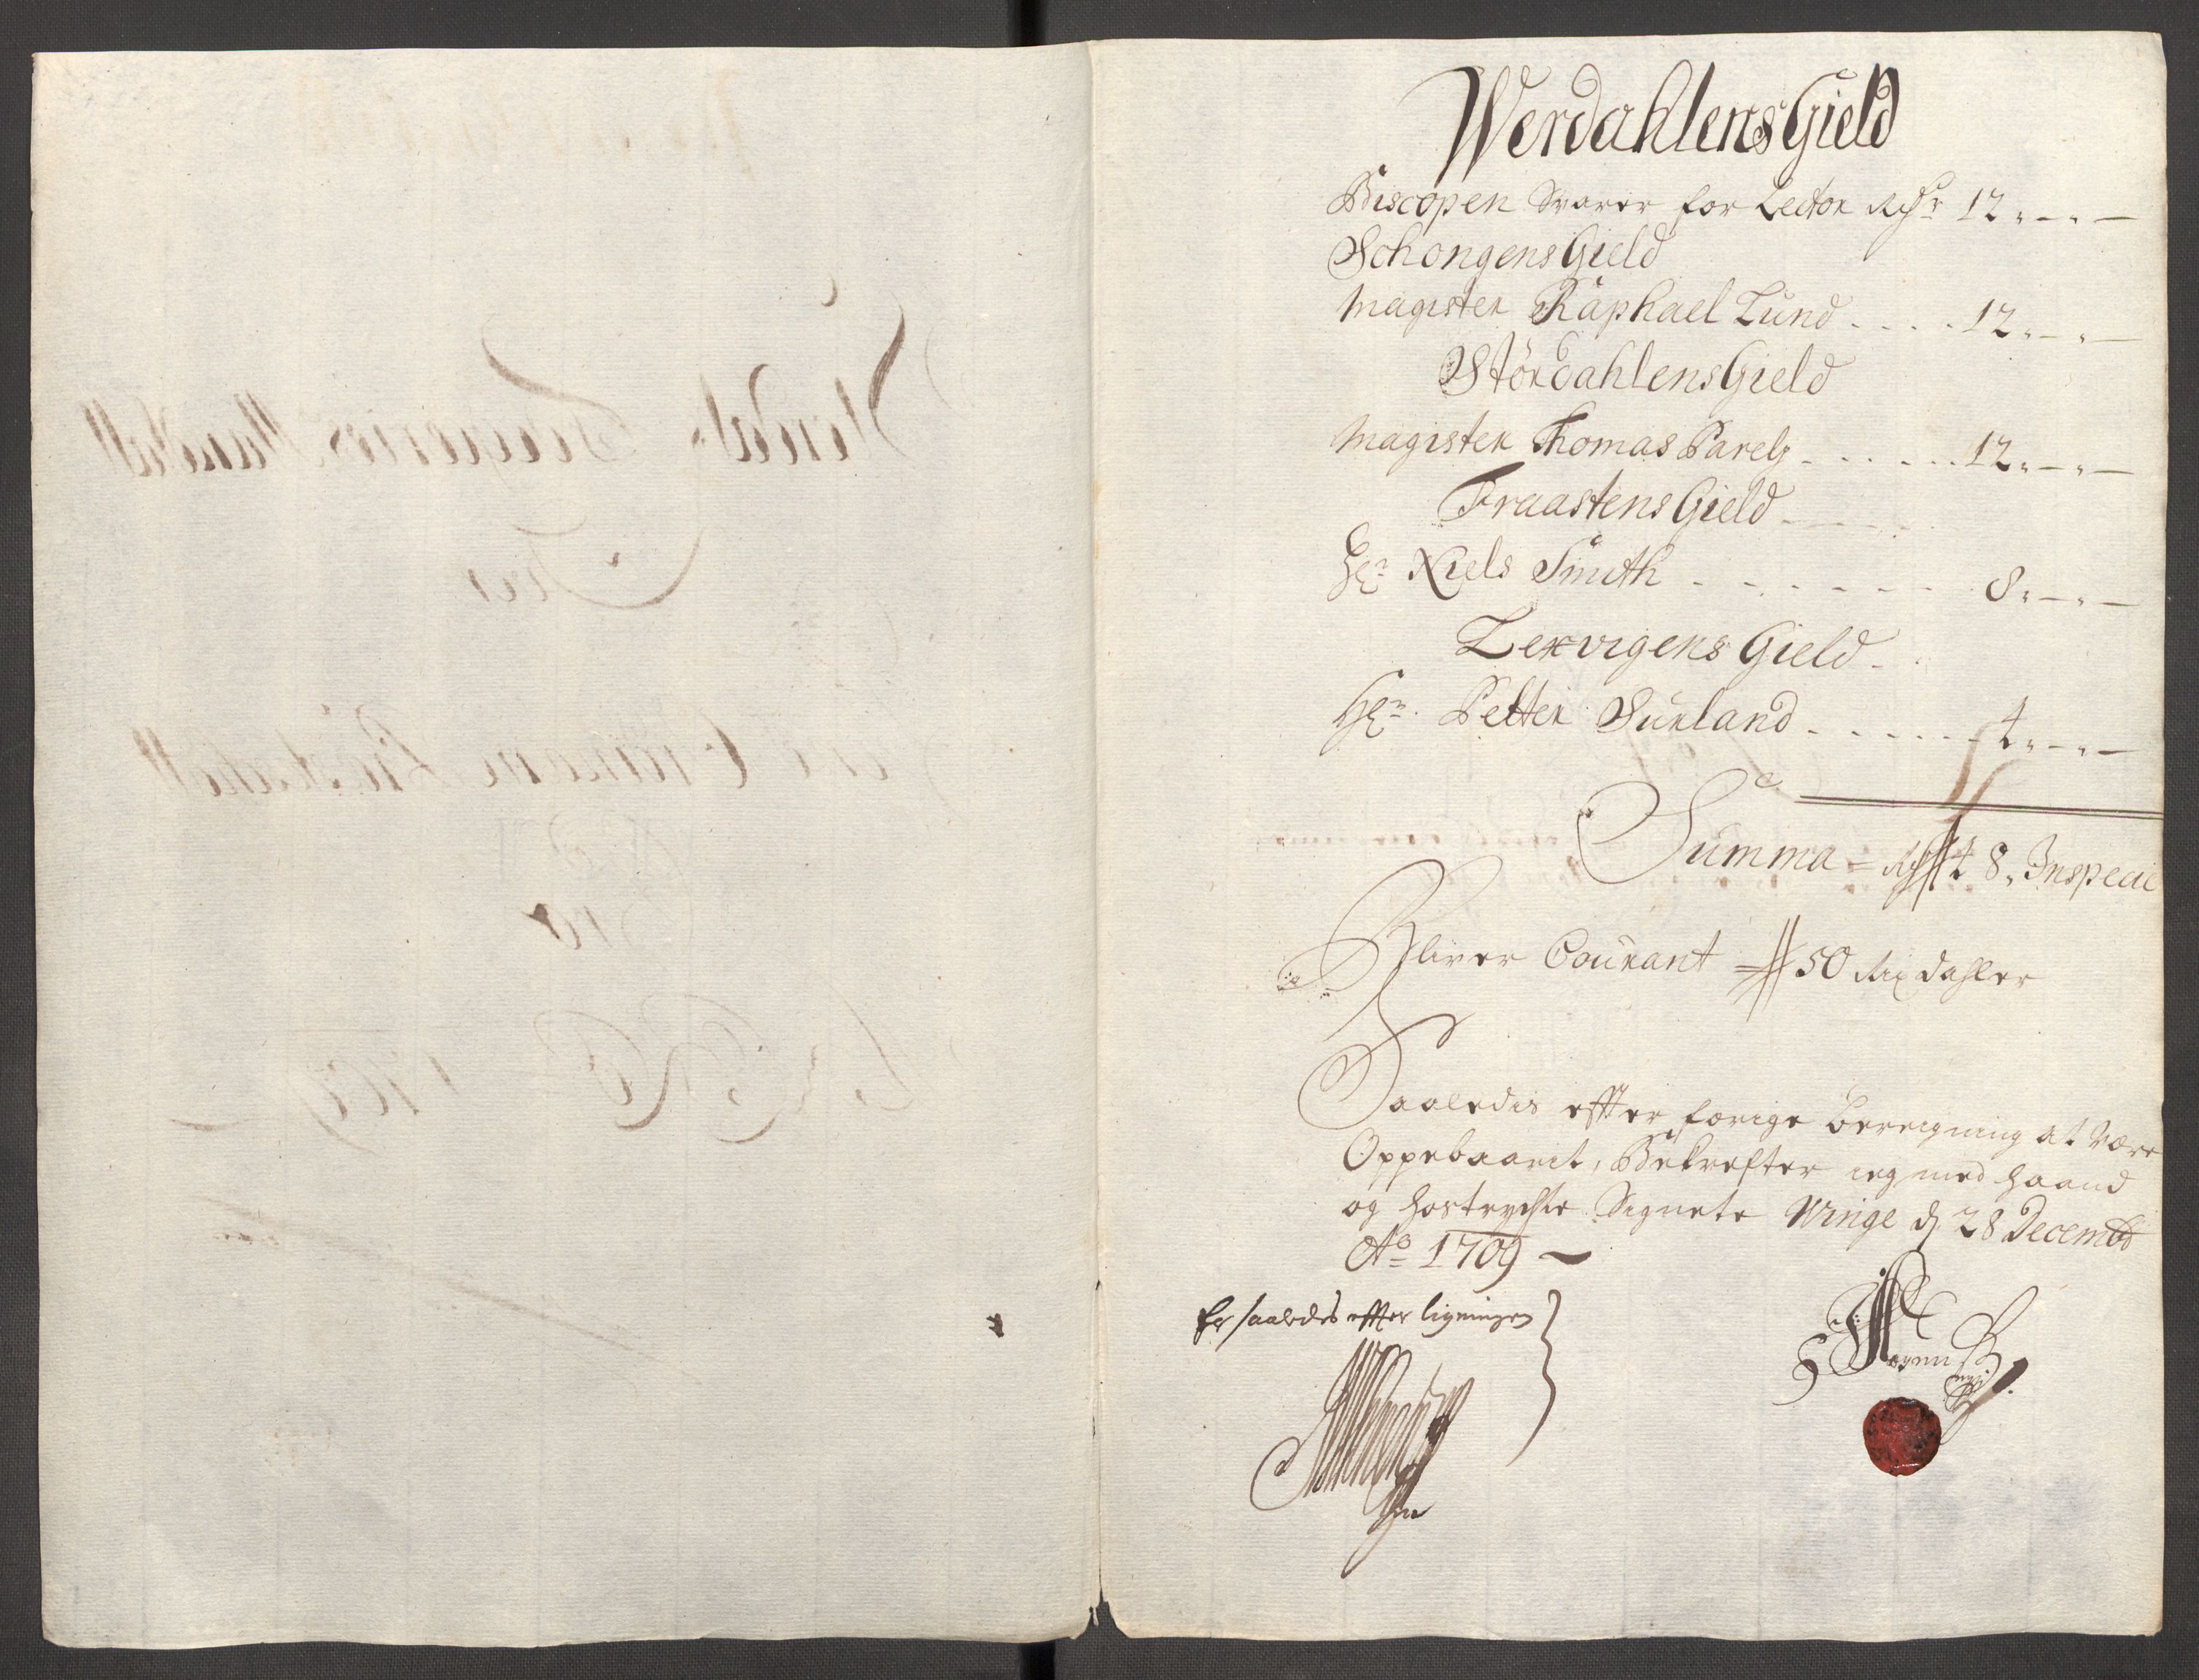 Werdahlens Gield
Biscopen Svarer for Lector Rdr 12 „ — „ —
Schongens Gield
Magister Raphael Lund . . . . 12 „ — „ —
Størdahlens Gield
Magister Thomas Parelj - . . . . . 12 „ — „ —
Fraastens Gield
Hr Niels Smith - - - - - - - 8 „ — „ —
Lexvigens Gield
Hr Petter Surland . - - - - - 4 „ — „ —
Summa - Rd 48 „ Inspecie
Bliver Courant 50 Rixdahler
Saaledis effter forige beregning at være
Oppebaarit, Bekrefter ieg med haand
og hostrychte Signete Winge d. 28 Decembr
Ao 1709
Er saaledes effter ligningen